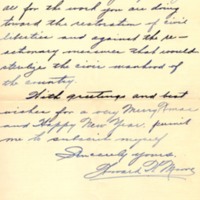 all for the work you are doing
toward the restoration of civil
liberties and against the re-
actionary measures that would
sterilize the civic manhood of
the country.
With greetings and best
wishes for a very Merry Xmas
and Happy New Year, permit
me to subscribe myself
Sincerely yours,
Howard K.